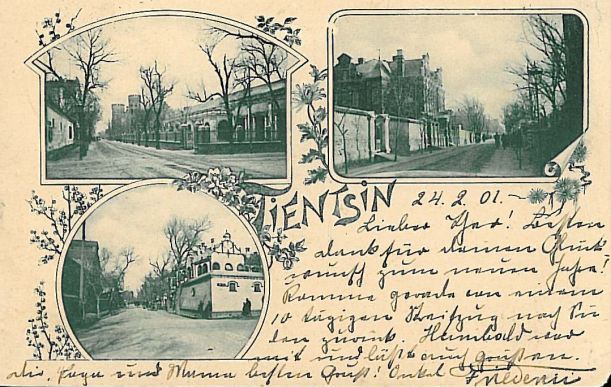 TIENTSIN
24.2.01.
Lieber Ther! Besten
Dank für deinen Glück
wunsch zum neuen Jahre!
Komme gerade von einem
10 tägigen Streifzug nach Sü
den zurück. Humbold war
mit und läßt auch grüßen.
Dir, Papa und Mama besten Gruß! Onkel